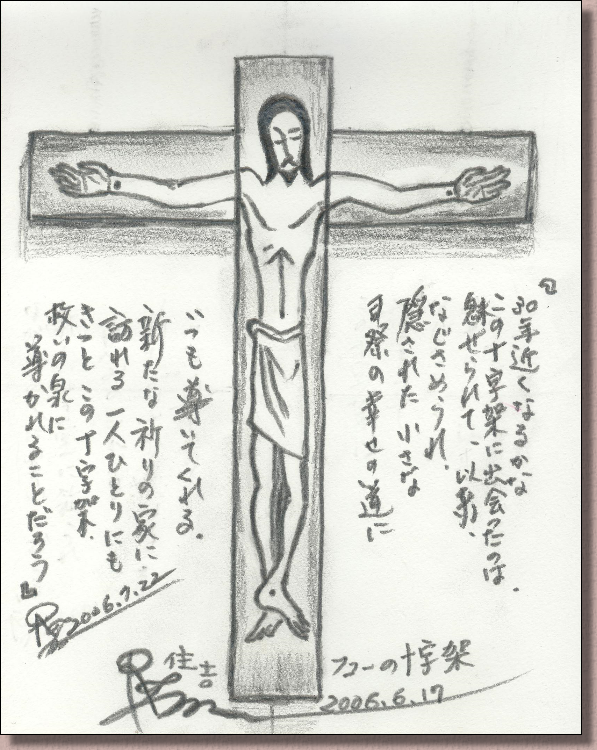 『30年近くなるかな
この十字架に出会ったのは.
魅せられて、以来、
なぐさめられ,
隠された小さな
の幸せの道に
いつも導いてくれる.
新たな祈りの家に
訪れる一人ひとりにも
きっとこの十字架、
救いの泉に
導かれることだろう』
2006.7.22
住吉
フコーの十字架
2006.6.17